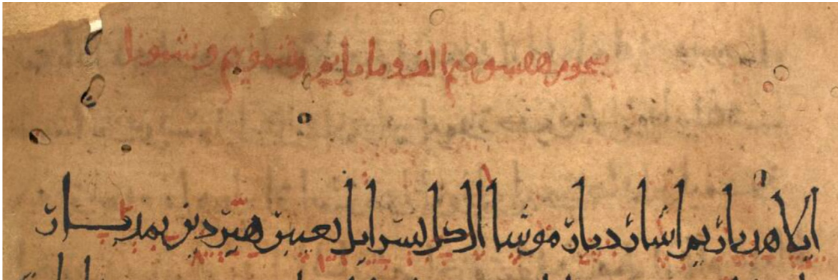 سخوم هفسوقيم الف وماتايم وشمونيم وشمونا
ايلا هدباريم اشار ديبار موشا ال كل يسرايل بعيبر هيردين بمدبار